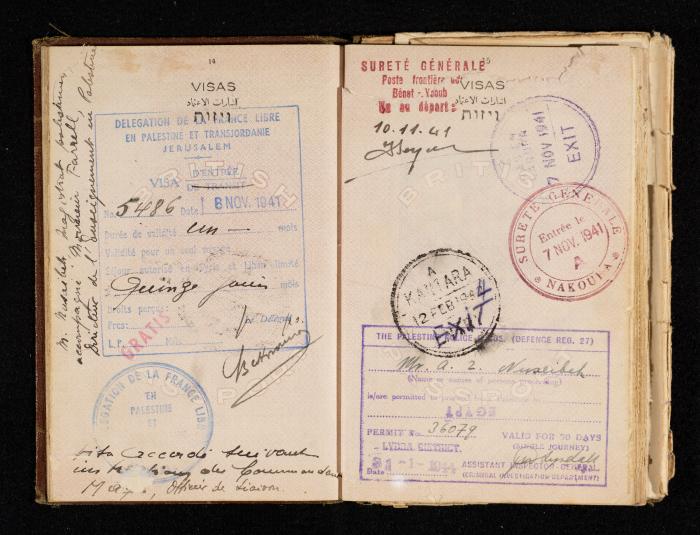 14
VISAS
تأشيرات
ויזות
DELEGATION DE LA FRANCE LIBRE
EN PALESTINE ET TRANSJORDANIE
JERUSALEM
D'ENTRÉE
VISA DE TRANSIT
No. 5486 Date 8 NOV. 1941
Durée de validité un mois
Validité pour un seul voyage
Séjour autorisé en Syrie et Liban limité
Quinze jours mois
Droits perçus:
Frcs:
L.P.
GRATIS
DELEGATION DE LA FRANCE LIBRE
EN
PALESTINE
ET
M. Nuseibeh, magistrat palestinien
accompagne Monsieur Farrell,
Directeur de l'Enseignement en Palestine
Visa accordé suivant
instructions du Commandant
Officier de Liaison
SURETÉ GÉNÉRALE
Poste frontière de
Bénet-Yacub
Vu au départ
10.11.41
VISAS
ויזות
7 NOV 1941
EXIT
SURETÉ GÉNÉRALE
Entrée le
7 NOV. 1941
A
NAKOURA
KANTARA
12 FEB 1944
EXIT
THE PALESTINE POLICE (DEFENCE REG. 27)
Mr. A. Z. Nuseibeh
(Name or names of persons proceeding)
is/are permitted to
EGYPT
PERMIT No. 36079 VALID FOR 30 DAYS
LYDDA DISTRICT. (SINGLE JOURNEY)
Date 31-1-1944 ASSISTANT INSPECTOR-GENERAL
(CRIMINAL INVESTIGATION DEPARTMENT)